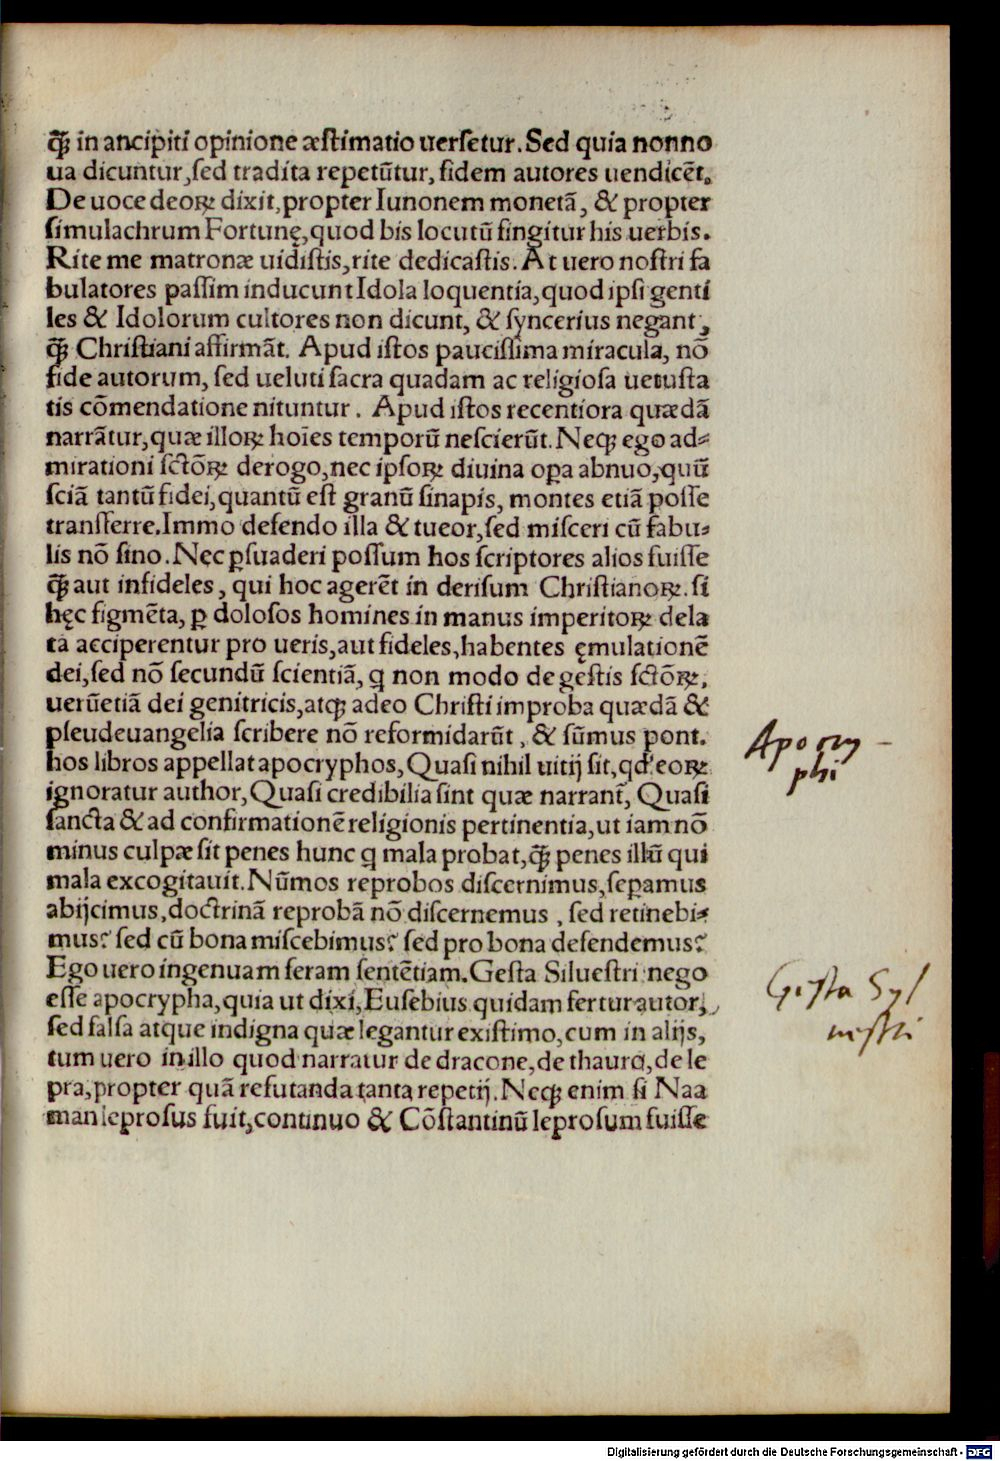 ꝙ̃ in ancipiti opinione æſtimatio uerſetur. Sed quia nonno
ua dicuntur, ſed tradita repetũtur, fidem autores uendicẽt.
De uoce deoꝝ dixit, propter Iunonem monetã, & propter
ſimulachrum Fortunę, quod bis locutũ fingitur his uerbis.
Rite me matronæ uidiſtis, rite dedicaſtis. At uero noſtri fa
bulatores paſſim inducunt Idola loquentia, quod ipſi genti
les & Idolorum cultores non dicunt, & ſyncerius negant,
ꝙ̃ Chriſtiani affirmãt. Apud iſtos pauciſſima miracula, nõ
fide autorum, ſed ueluti ſacra quadam ac religioſa uetuſta
tis cõmendatione nituntur. Apud iſtos recentiora quædã
narrãtur, quæ illoꝝ hoīes temporũ neſcierũt. Neqꝫ ego ad⸗
mirationi ſctõꝝ derogo, nec ipſoꝝ diuina oꝑa abnuo, quũ
ſciã tantũ fidei, quantũ eſt granũ ſinapis, montes etiã poſſe
transferre. Immo defendo illa & tueor, ſed miſceri cũ fabu⸗
lis nõ ſino. Nec ꝑſuaderi poſſum hos ſcriptores alios fuiſſe
ꝙ̃ aut infideles, qui hoc agerẽt in deriſum Chriſtianoꝝ. ſi
hęc figmẽta, ꝑ doloſos homines in manus imperitoꝝ dela
ta acciperentur pro ueris, aut fideles, habentes ęmulationẽ
dei, ſed nõ ſecundũ ſcientiã, ꝗ non modo de geſtis ſctõꝝ,
uerũetiã dei genitricis, atqꝫ adeo Chriſti improba quædã &
pſeudeuangelia ſcribere nõ reformidarũt, & ſũmus pont.
hos libros appellat apocryphos, Quaſi nihil uitij ſit, qd' eoꝝ
ignoratur author, Quaſi credibilia ſint quæ narrant̃, Quaſi
ſancta & ad confirmationẽ religionis pertinentia, ut iam nõ
minus culpæ ſit penes hunc ꝗ mala probat, ꝙ̃ penes illũ qui
mala excogitauit. Nũmos reprobos diſcernimus, ſeꝑamus
abijcimus, doctrinã reprobã nõ diſcernemus, ſed retinebi⸗
mus? ſed cũ bona miſcebimus? ſed pro bona defendemus?
Ego uero ingenuam feram ſentẽtiam. Geſta Silueſtri nego
eſſe apocrypha, quia ut dixi, Euſebius quidam fertur autor,
ſed falſa atque indigna quæ legantur exiſtimo, cum in alijs,
tum uero in illo quod narratur de dracone, de thauro, de le
pra, propter quã refutanda tanta repetij. Neqꝫ enim ſi Naa
man leproſus fuit, continuo & Cõſtantinũ leproſum fuiſſe
Apocry-
phi
Geſta Syl
ueſtri
Digitalisierung gefördert durch die Deutsche Forschungsgemeinschaft - DFG